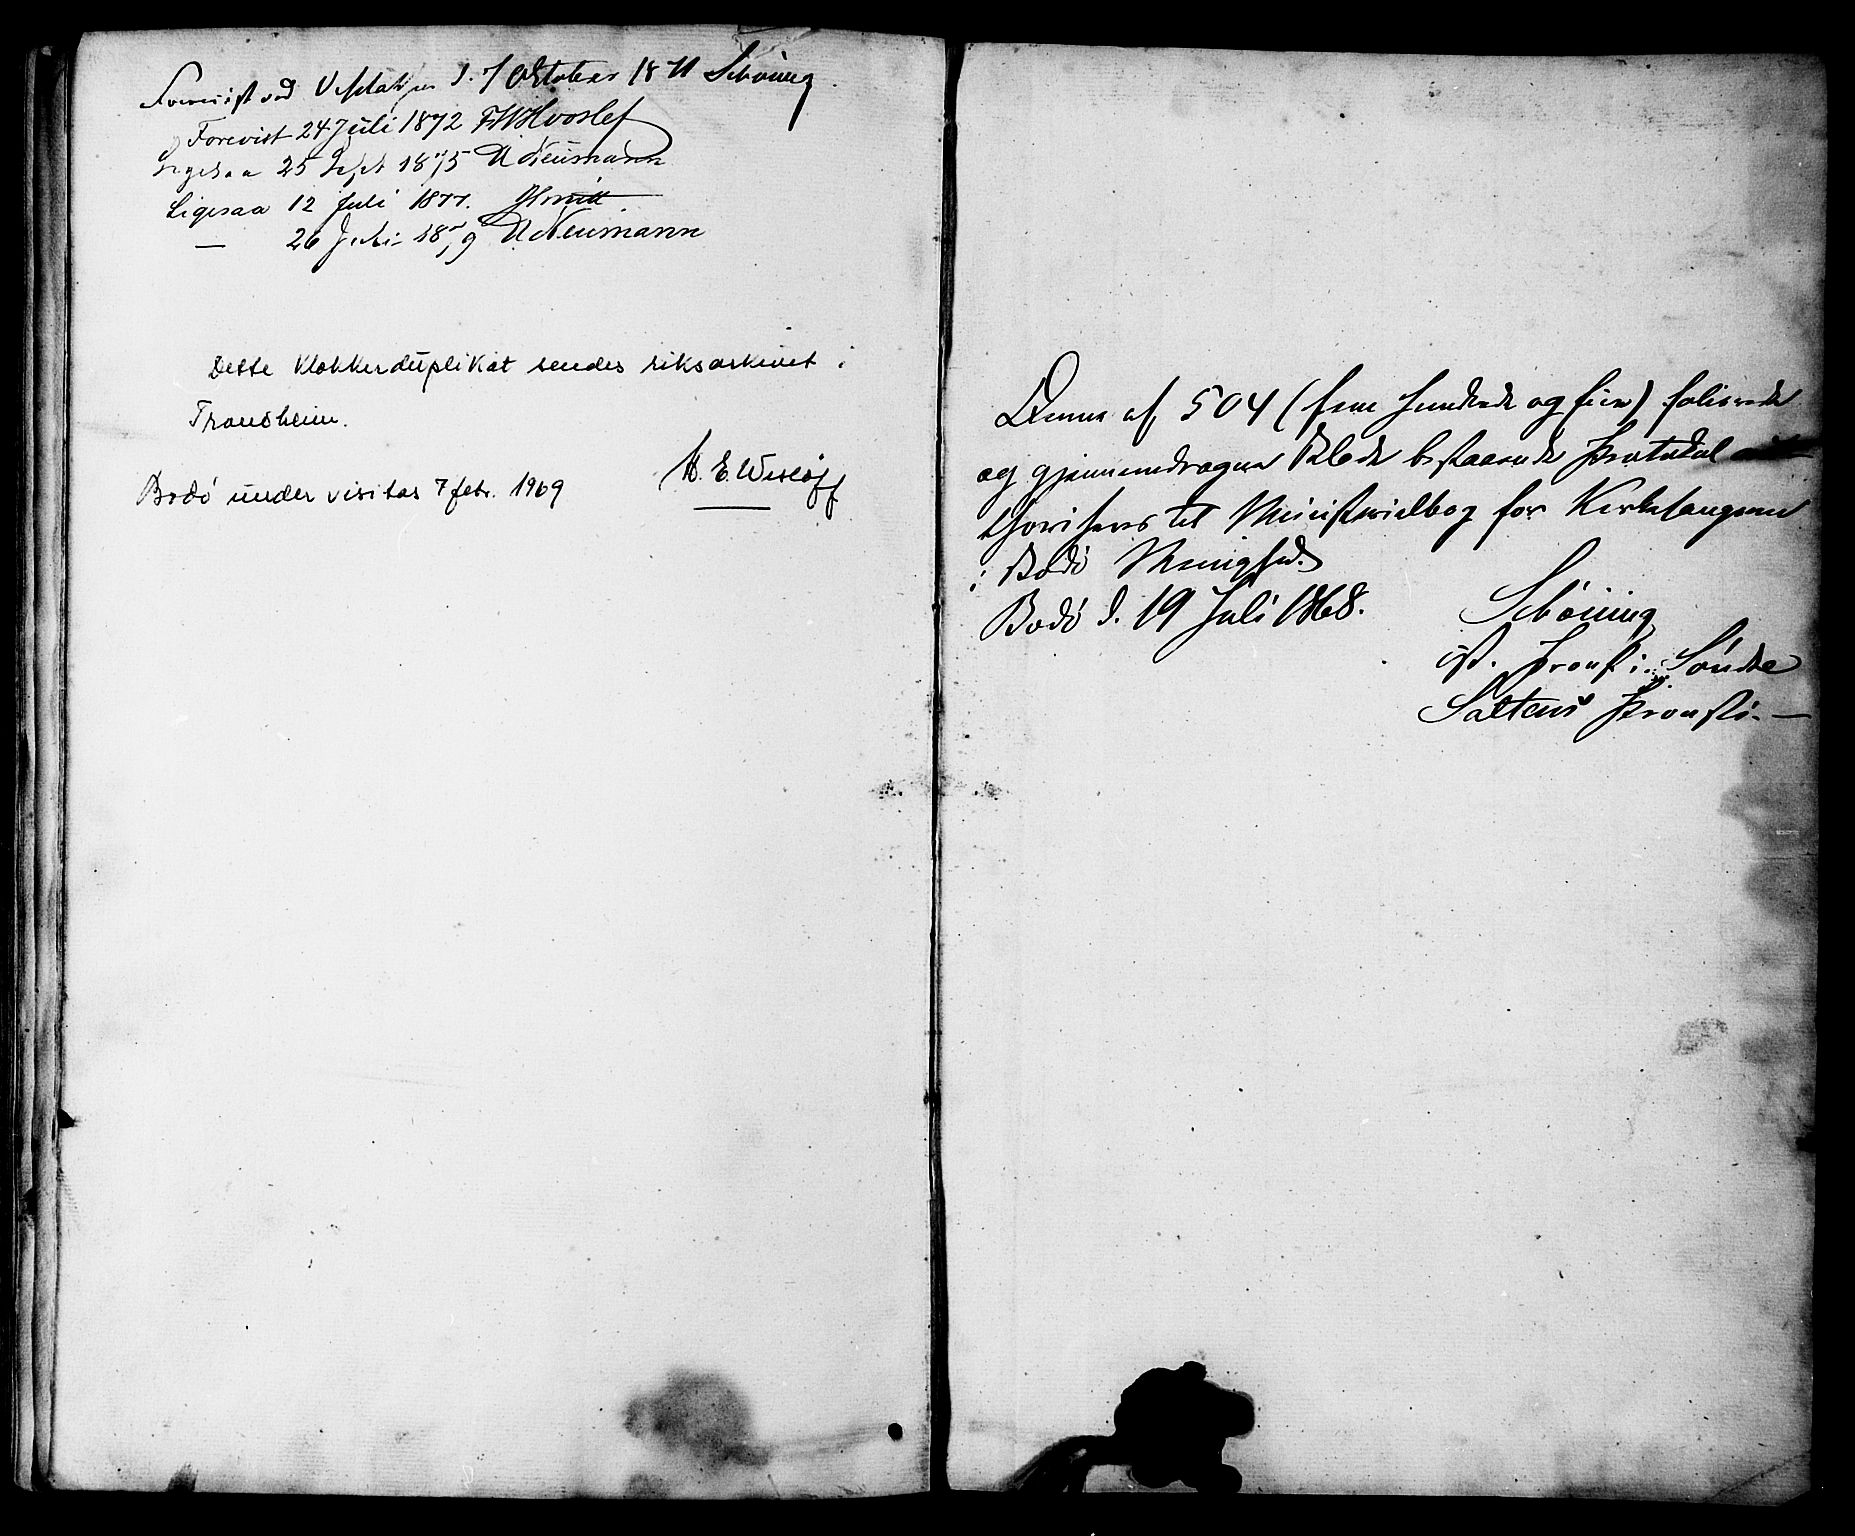 Forevist ved Visitatsen d. 7 Oktober 1871 Schöning
Forevist 24 Juli 1872 FWHvoslef
Ligesaa 25 Sept 1875 Neumann
Ligesaa 12 Juli 1877.
— 26 Juli 1879 Neumann
Dette klokkerduplikat sendes riksarkivet i
Trondheim.
Bodö under visitas 7 febr. 1909
Denne af 504 (fem hundrede og fire) folierede
og gjennemdragne Blade bestaaende Protokol
thoriseres til Ministerialbog for Kirkesangeren
i Bodö Menighed.
Bodö d. 19 Juli 1868. Schöning
cst. Provst i Söndre
Saltens Provsti. —